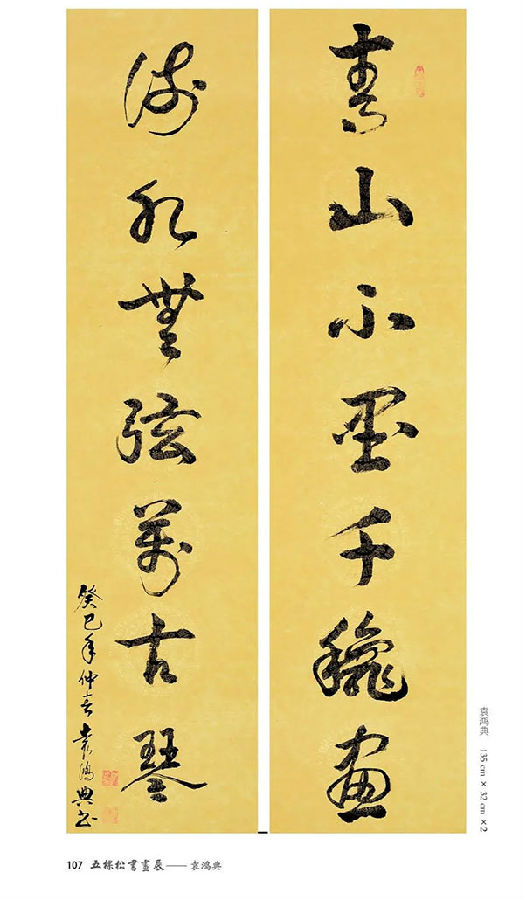 青山不墨千龝畫
流水無弦萬古琴
癸巳年仲春袁鴻典书
袁鸿典 135 cm × 32 cm ×2
107 五棵松書畫展——袁鸿典